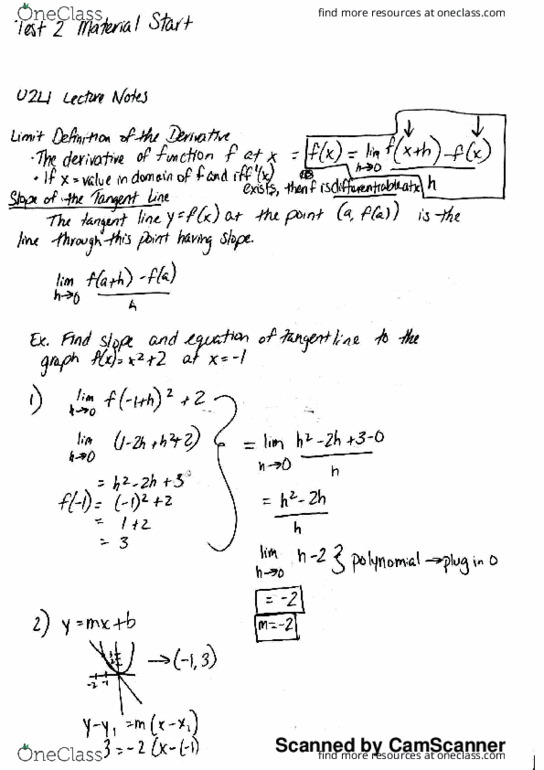 OneClass
find more resources at oneclass.com
Test 2 Material Start
U2L1 Lecture Notes
Limit Definition of the Derivative
· The derivative of function f at x = f(x) = lim h→0 f(x+h) - f(x) / h
· If x = value in domain of f and if f'(x) exists, then f is differentiable at x
Slope of the Tangent Line
The tangent line y=f(x) at the point (a, f(a)) is the
line through this point having slope.
lim h→0 f(a+h) - f(a) / h
Ex. Find slope and equation of tangent line to the
graph f(x)=x²+2 at x=-1
1) lim h→0 f(-1+h)² + 2
lim h→0 (1-2h+h²+2)
= h²-2h+3
f(-1) = (-1)²+2
= 1+2
= 3
= lim h→0 h²-2h+3-0 / h
= h²-2h / h
lim h→0 h-2 } polynomial → plug in 0
= -2
m=-2
2) y=mx+b
→ (-1,3)
-2 -1
y-y₁=m(x-x₁)
3=-2(x-(-1)
Scanned by CamScanner
OneClass
find more resources at oneclass.com